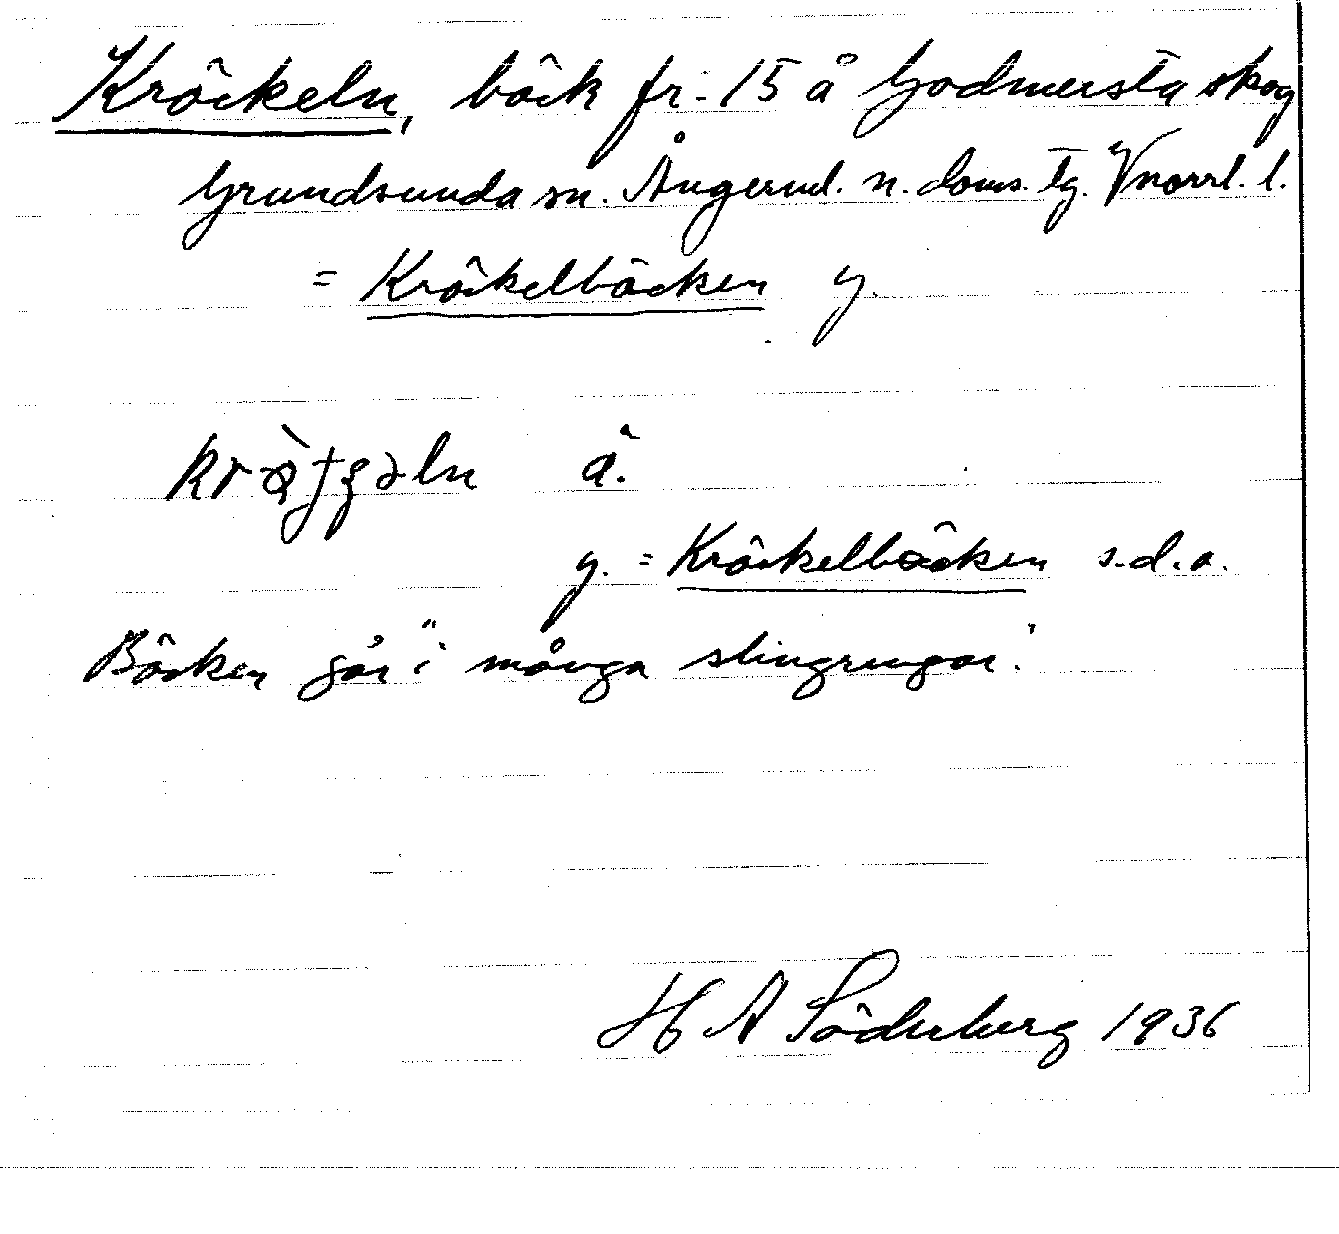 Kröckeln, bäck fr. 15 å Godmersta skog
Grundsunda sn. Ångerml. n. doms. tg. Vnorrl. l.
= Kröckelbäcken y.
ä.
y. = Kröckelbäcken s.d.o.
Bäcken går "i många slingringar."
H A Söderberg 1936